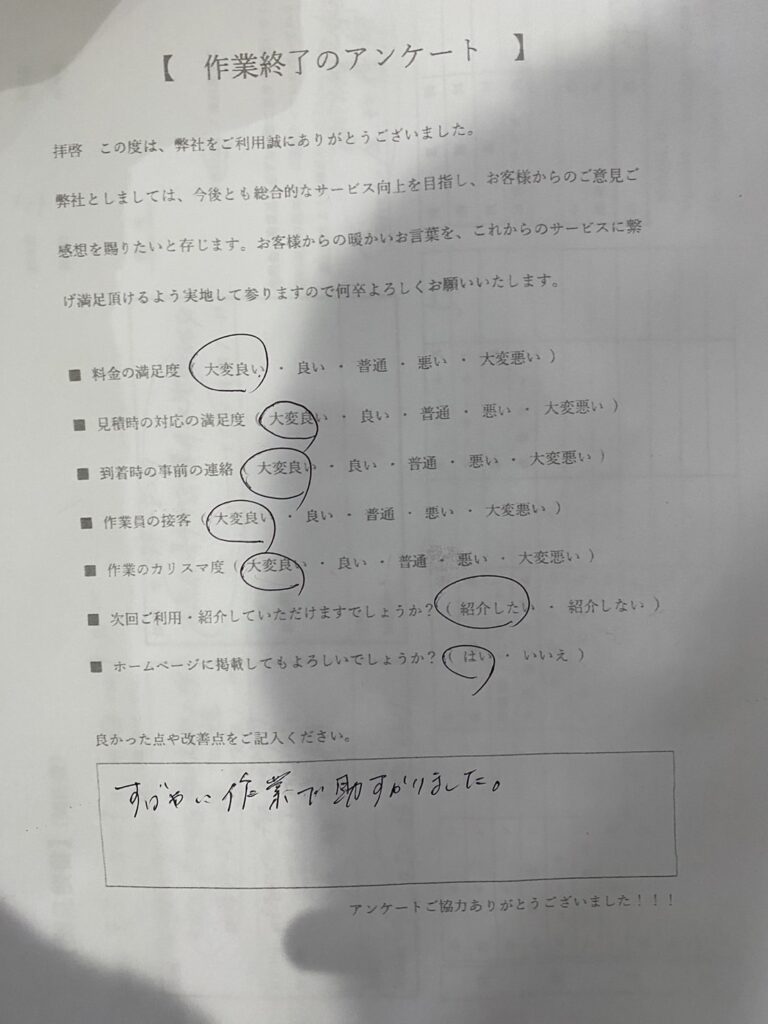 【 作業終了のアンケート 】
拝啓 この度は、弊社をご利用誠にありがとうございました。
弊社としましては、今後とも総合的なサービス向上を目指し、お客様からのご意見ご
感想を賜りたいと存じます。お客様からの暖かいお言葉を、これからのサービスに繋
げ満足頂けるよう実地して参りますので何卒よろしくお願いいたします。
■ 料金の満足度 ( 大変良い ・ 良い ・ 普通 ・ 悪い ・ 大変悪い )
■ 見積時の対応の満足度 ( 大変良い ・ 良い ・ 普通 ・ 悪い ・ 大変悪い )
■ 到着時の事前の連絡 ( 大変良い ・ 良い ・ 普通 ・ 悪い ・ 大変悪い )
■ 作業員の接客 ( 大変良い ・ 良い ・ 普通 ・ 悪い ・ 大変悪い )
■ 作業のカリスマ度 ( 大変良い ・ 良い ・ 普通 ・ 悪い ・ 大変悪い )
■ 次回ご利用・紹介していただけますでしょうか? ( 紹介したい ・ 紹介しない )
■ ホームページに掲載してもよろしいでしょうか? ( はい ・ いいえ )
良かった点や改善点をご記入ください。
すばやい作業で助すかりました。
アンケートご協力ありがとうございました!!!